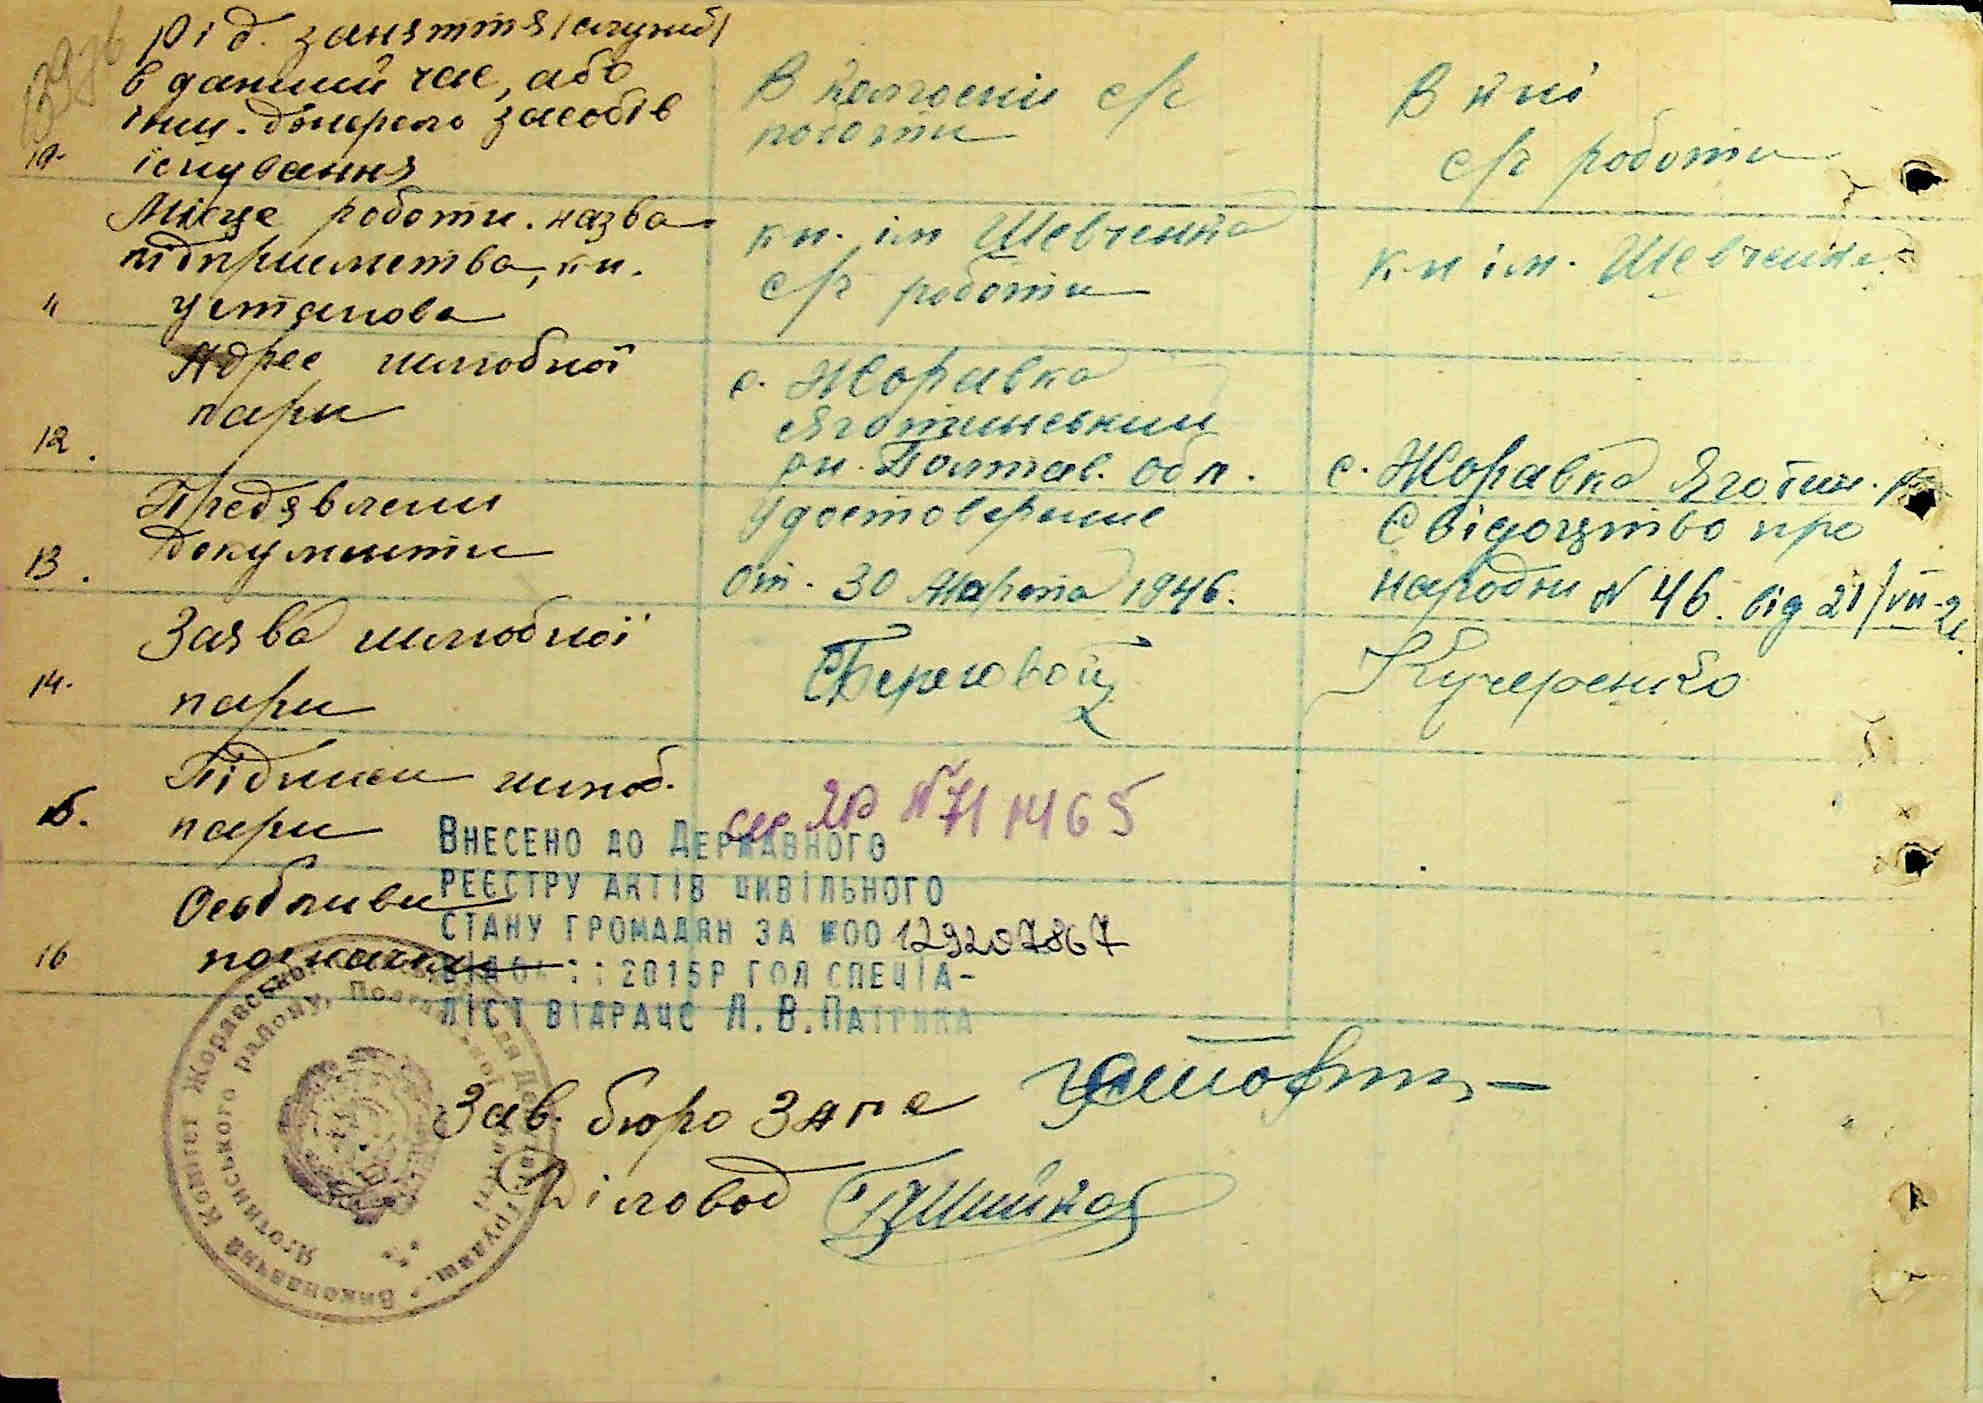 Рід. заняття /служб/
в даний час, або
інш. джерело засобів
10. існування
В колгоспі с/г
роботи
В к-пі
с/г роботи
Місце роботи. назва
підприємства, кп.
11 установа
кп. ім Шевченка
с/г роботи
кп ім. Шевченка
Адрес шлюбної
12. пари
с. Жоравка
Яготинський
рн. Полтав. обл.
с. Жоравка Яготин. р
Предявлени
13. документи
Удостоверение
от. 30 Марта 1946.
Свідоцтво про
народж N 46. від 21/VII-2
Заява шлюбної
14. пари
Береговой
Кучеренко
Підписи шлюб.
15. пари
сер ЯР № 711465
Особливи
16 позначки
Внесено до Державного
реєстру актів цивільного
стану громадян за №00129207867
2015р гол специа-
ліст відрацс Л.В.
Виконавчий Комітет Жоравської
Яготинського району, Полтавської
Зав. бюро Загса
Діловод